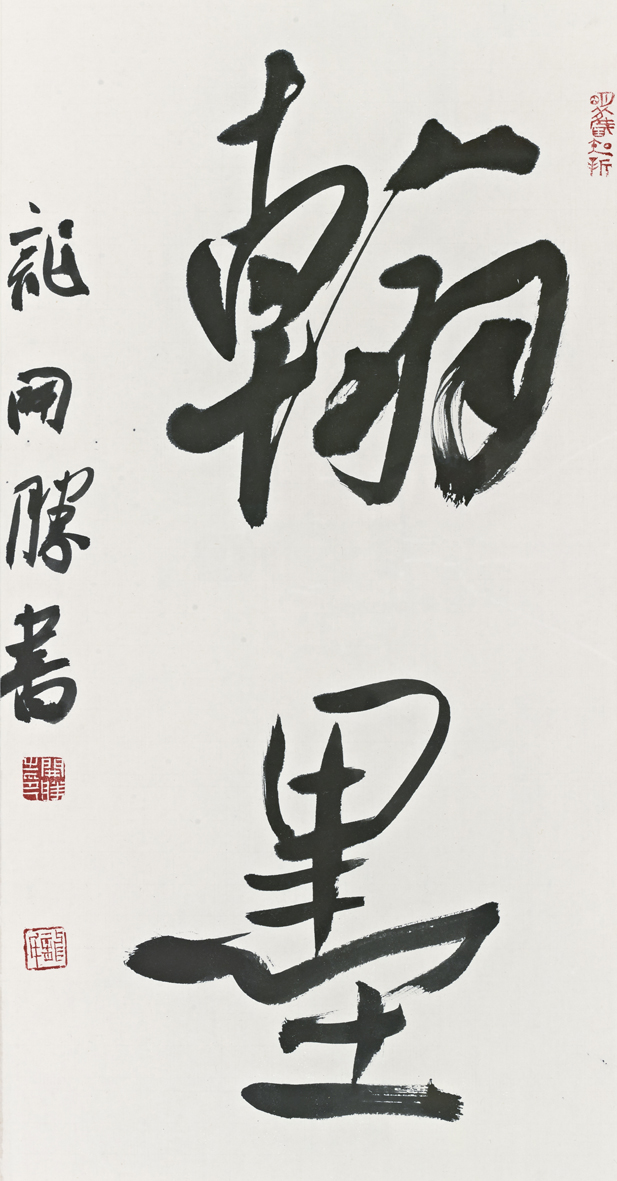 翰墨
龍開勝書